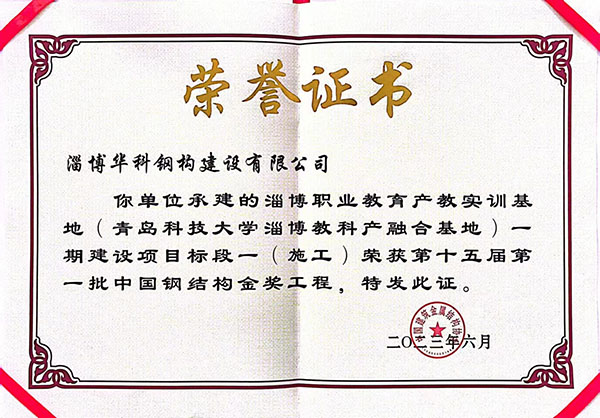 荣誉证书
淄博华科钢构建设有限公司
你单位承建的淄博职业教育产教实训基
地（青岛科技大学淄博教科产融合基地）一
期建设项目标段一（施工）荣获第十五届第
一批中国钢结构金奖工程，特发此证。
中国建筑金属结构协会
二〇二三年六月